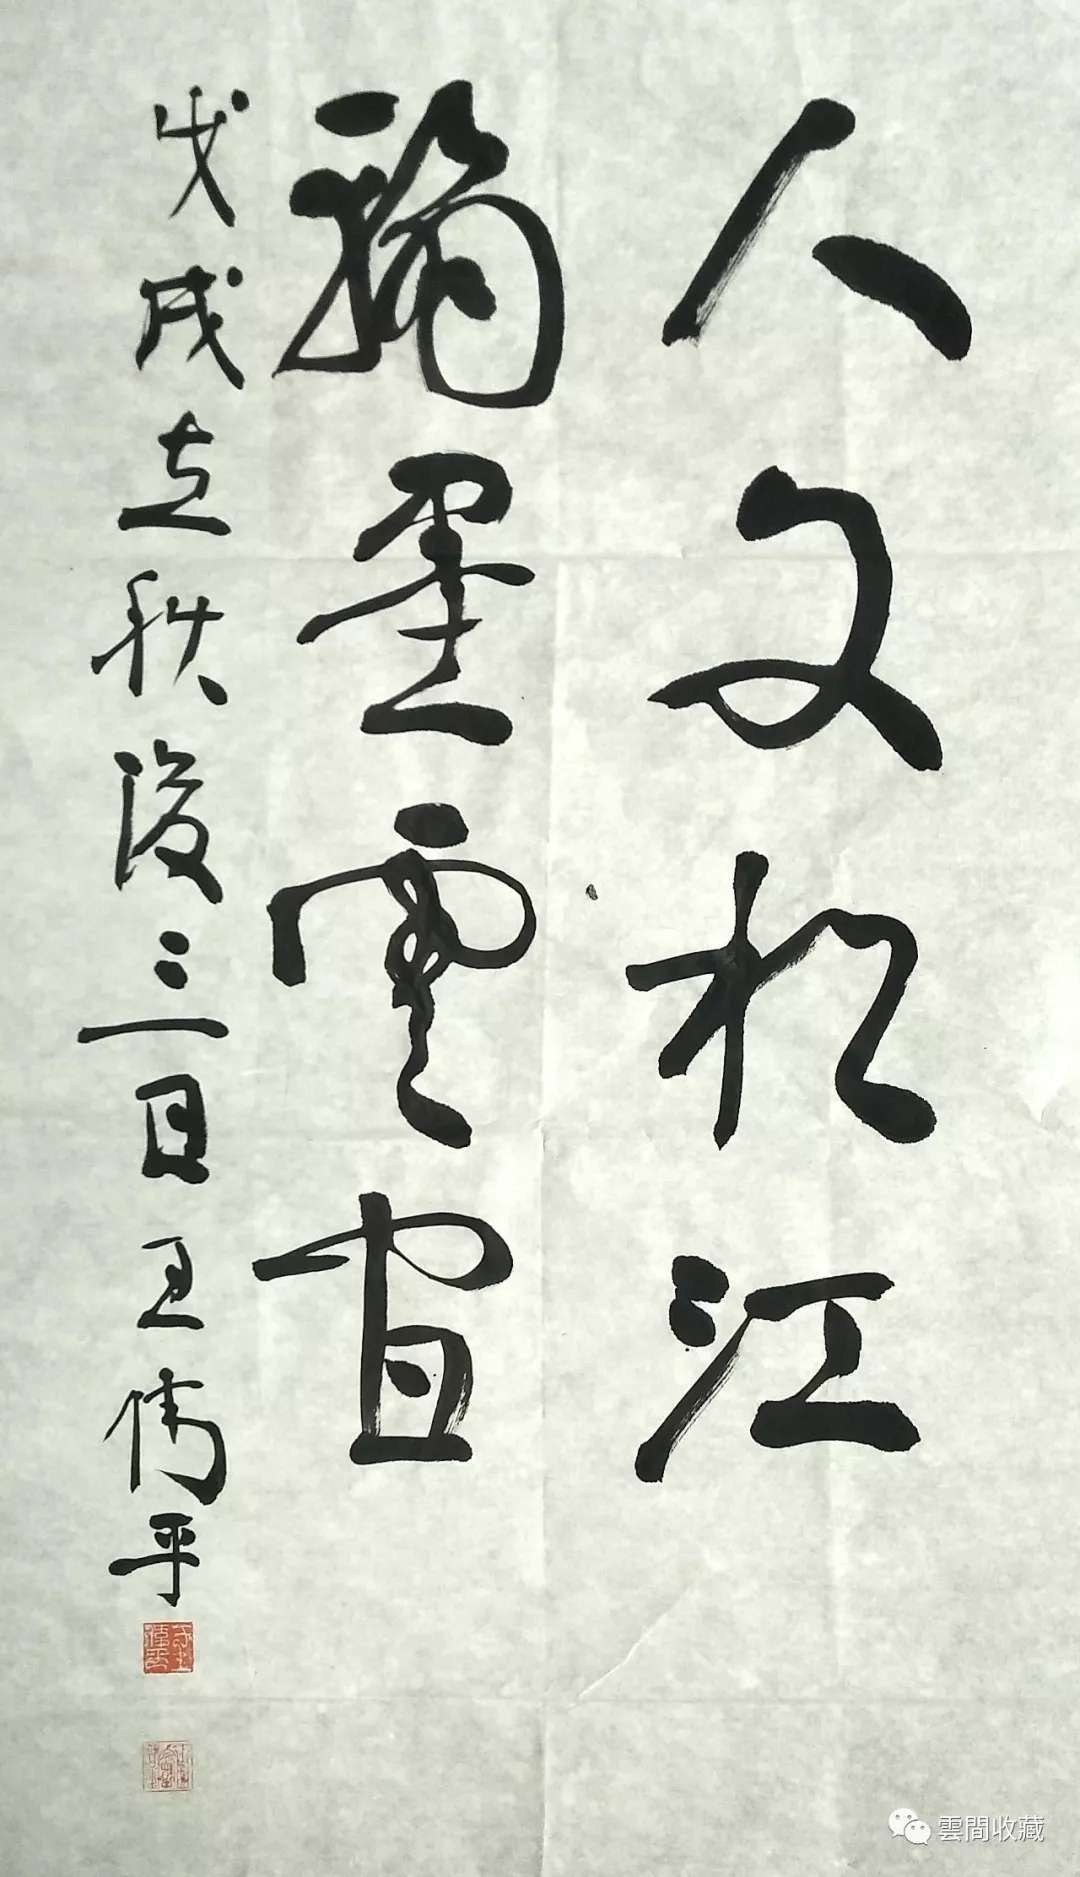 人文松江
墨雲
戊戌立秋後三日王偉平
雲間收藏